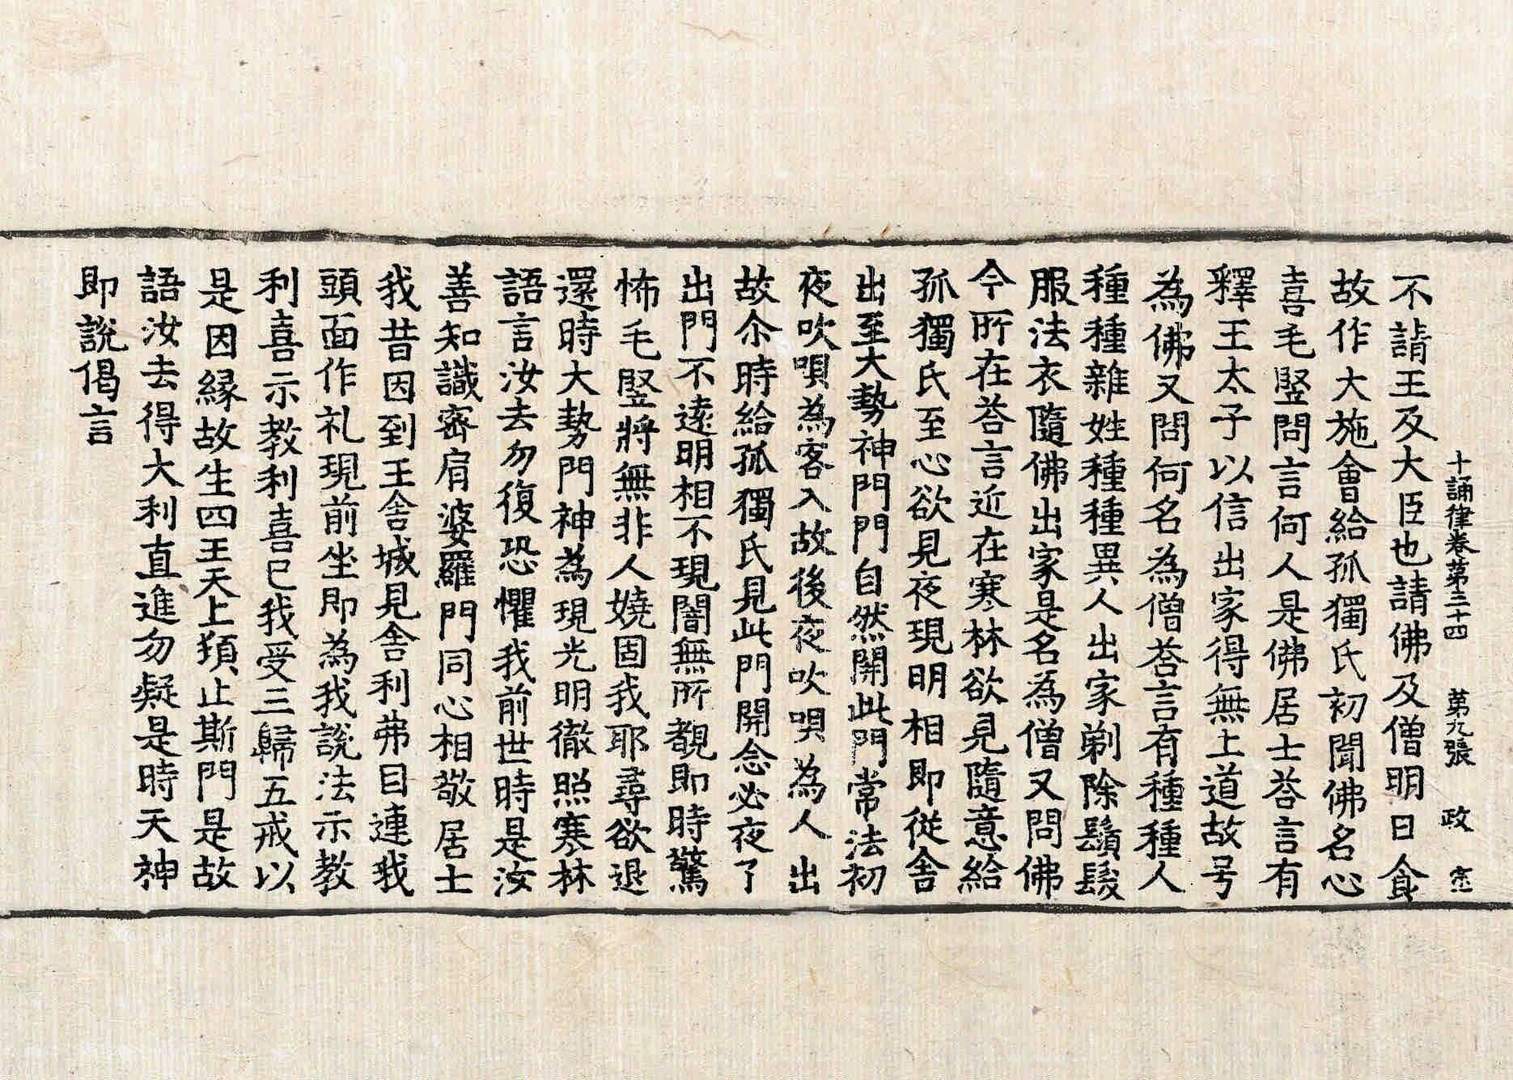 十誦律卷第三十四 第九張 政 𡧓
不請王及大臣也請佛及僧明日食
故作大施會給孤獨氏初聞佛名心
喜毛竪問言何人是佛居士荅言有
釋王太子以信出家得無上道故号
為佛又問何名為僧荅言有種種人
種種雜姓種種異人出家剃除鬚髮
服法衣隨佛出家是名為僧又問佛
今所在荅言近在寒林欲見隨意給
孤獨氏至心欲見夜現明相即從舍
出至大勢神門門自然開此門常法初
夜吹唄為客入故後夜吹唄為人出
故尒時給孤獨氏見此門開念必夜了
出門不遠明相不現闇無所覩即時驚
怖毛竪將無非人嬈固我耶尋欲退
還時大勢門神為現光明徹照寒林
語言汝去勿復恐懼我前世時是汝
善知識密肩婆羅門同心相敬居士
我昔因到王舍城見舍利弗目連我
頭面作礼現前坐即為我說法示教
利喜示教利喜已我受三歸五戒以
是因縁故生四王天上湏止斯門是故
語汝去得大利直進勿疑是時天神
即說偈言